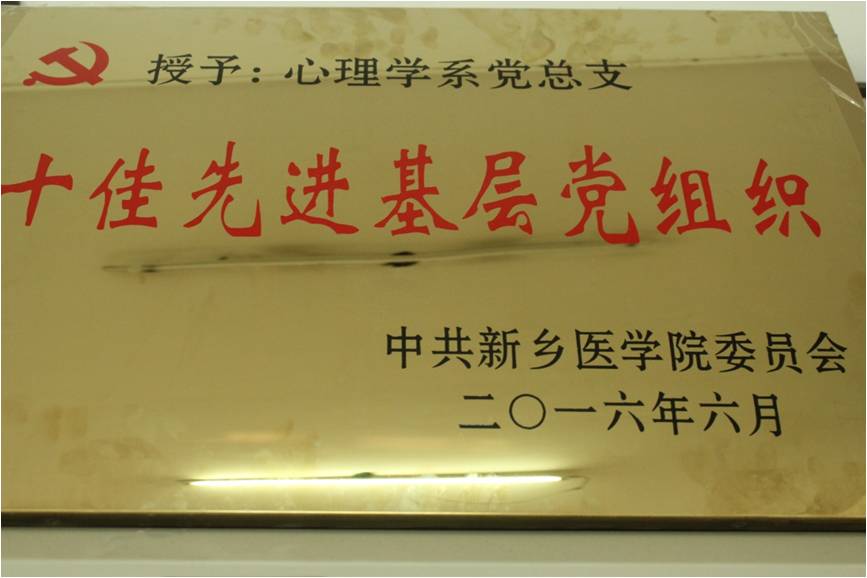 授予：心理学系党总支
十佳先进基层党组织
中共新乡医学院委员会
二〇一六年六月